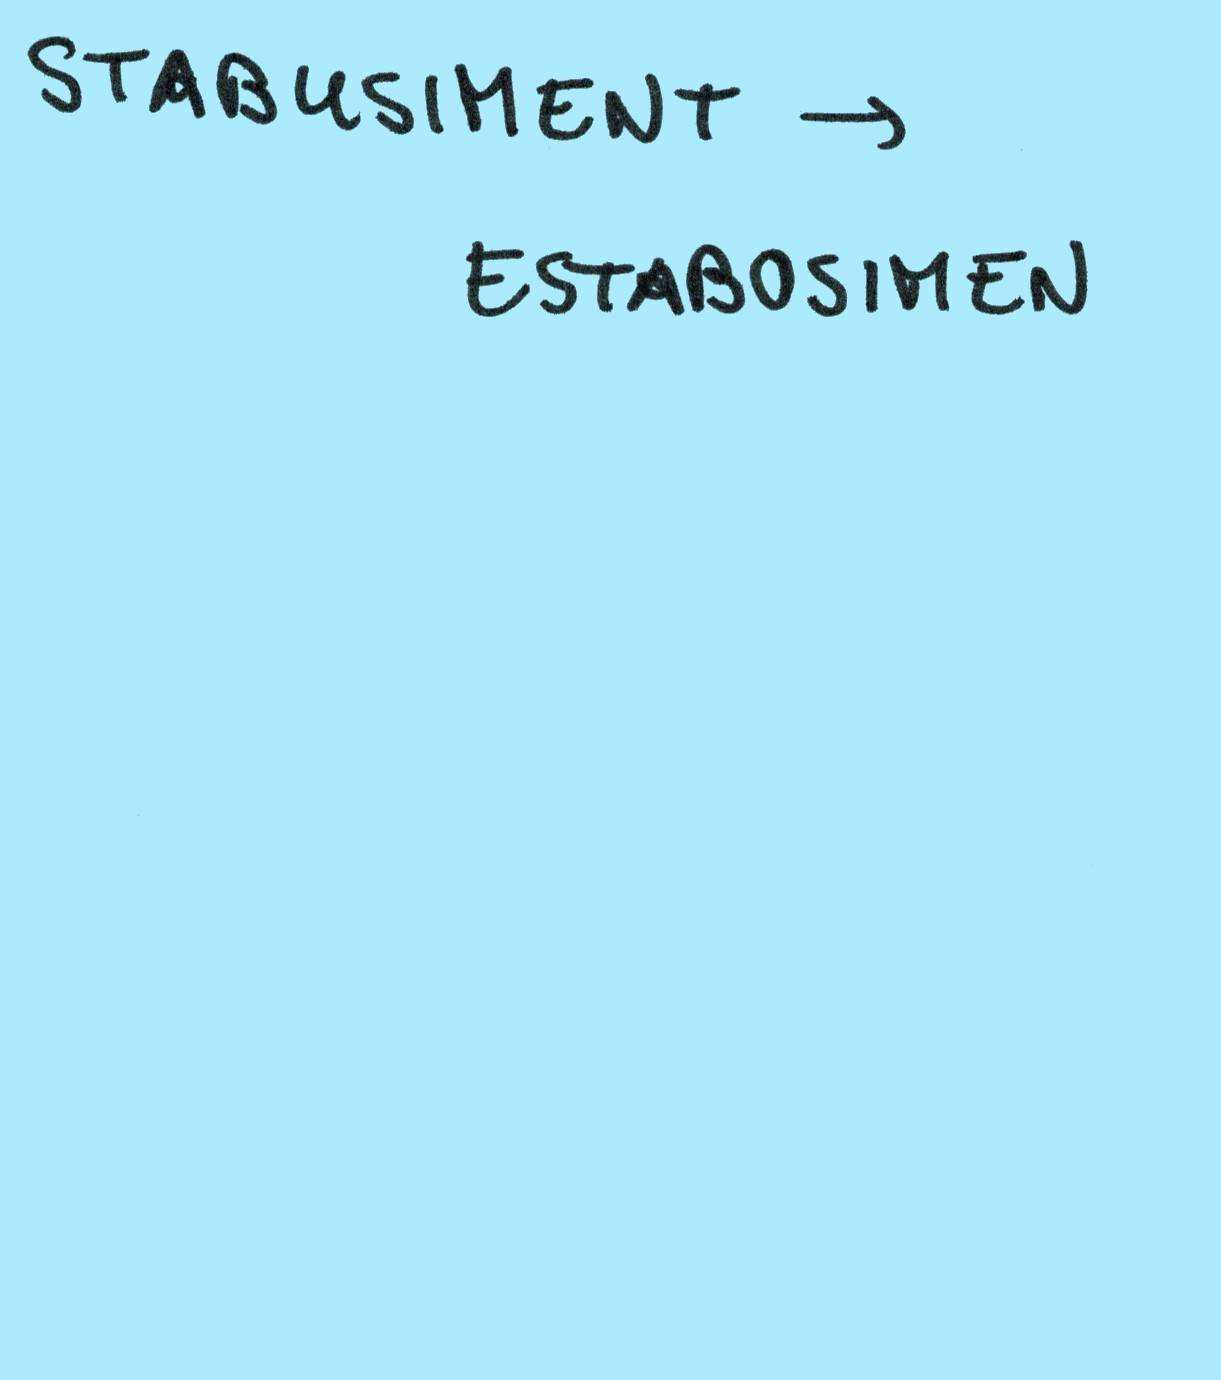 STABUSIMENT →
ESTABOSIMEN